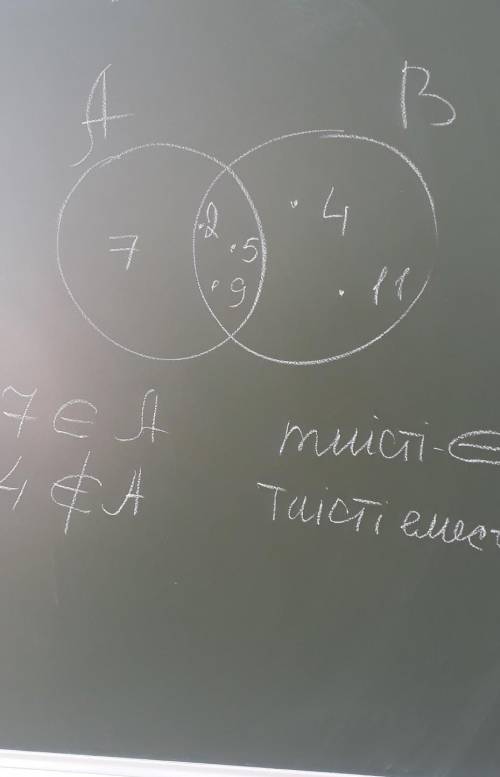 A B
7 2 4
5
9 11
7 ∈ A тиісті - ∈
4 ∉ A Тиісті емес